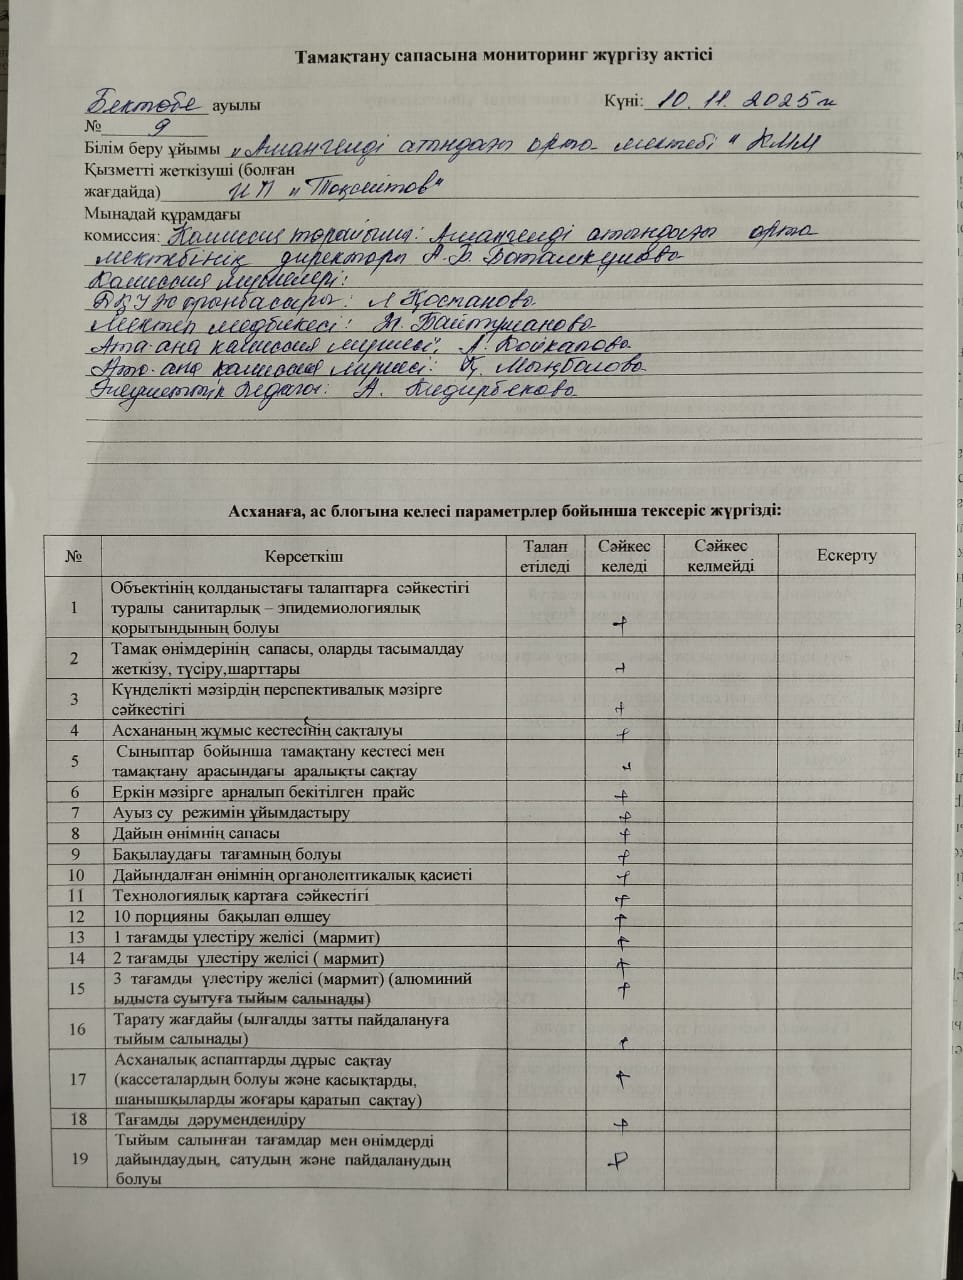 Тамақтану сапасына мониторинг жүргізу актісі
Бектөбе ауылы
Күні: 10. 11. 2025ж
№ 9
Білім беру ұйымы „Амангелді атындағы орта мектебі" КММ
Қызметті жеткізуші (болған
жағдайда) ИП „Тоқсеитов"
Мынадай құрамдағы
комиссия: Комиссия төрайымы: Амангелді атындағы орта
мектебінің директоры А.Б. Боташкушова
Комиссия мүшелері:
орынбасары: Л Қоспанова
Мектеп медбикесі: Байтуманова
Ата-ана комиссия мүшесі: Л. Койкапова
Ата-ана комиссия мүшесі: Қ. Мыңбаева
Әлеуметтік педагог: А. Кидирбекова
Асханаға, ас блогына келесі параметрлер бойынша тексеріс жүргізді:
№ Көрсеткіш Талап етіледі Сәйкес келеді Сәйкес келмейді Ескерту
1 Объектінің қолданыстағы талаптарға сәйкестігі
туралы санитарлық – эпидемиологиялық
қорытындының болуы +
2 Тамақ өнімдерінің сапасы, оларды тасымалдау
жеткізу, түсіру,шарттары +
3 Күнделікті мәзірдің перспективалық мәзірге
сәйкестігі +
4 Асхананың жұмыс кестесінің сақталуы +
5 Сыныптар бойынша тамақтану кестесі мен
тамақтану арасындағы аралықты сақтау +
6 Еркін мәзірге арналып бекітілген прайс +
7 Ауыз су режимін ұйымдастыру +
8 Дайын өнімнің сапасы +
9 Бақылаудағы тағамның болуы +
10 Дайындалған өнімнің органолептикалық қасиеті +
11 Технологиялық картаға сәйкестігі +
12 10 порцияны бақылап өлшеу +
13 1 тағамды үлестіру желісі (мармит) +
14 2 тағамды үлестіру желісі ( мармит) +
15 3 тағамды үлестіру желісі (мармит) (алюминий
ыдыста суытуға тыйым салынады) +
16 Тарату жағдайы (ылғалды затты пайдалануға
тыйым салынады) +
17 Асханалық аспаптарды дұрыс сақтау
(кассеталардың болуы және қасықтарды,
шанышқыларды жоғары қаратып сақтау) +
18 Тағамды дәрумендендіру +
19 Тыйым салынған тағамдар мен өнімдерді
дайындаудың, сатудың және пайдаланудың
болуы +